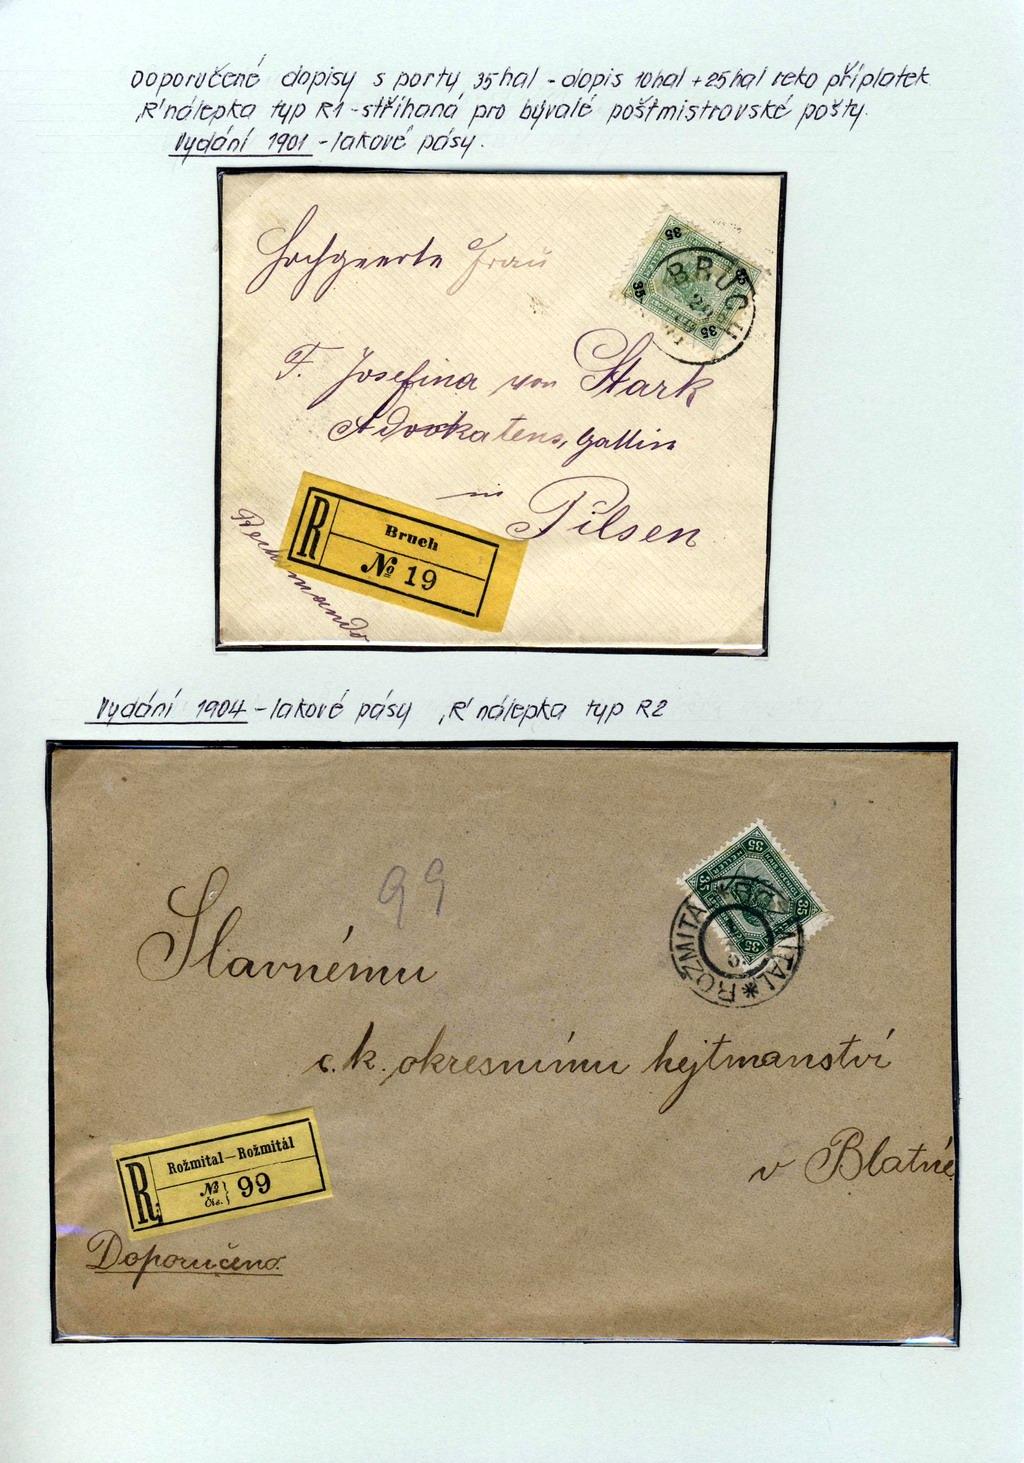 Doporučené dopisy s porty 35hal - dopis 10hal + 25hal reko příplatek
"R" nálepka typ R1 - stříhaná pro bývalé poštmistrovské pošty.
Vydání 1901 - lakové pásy.
Hochgeerte Frau
35
35
35
35
BRUCH
F. Josefina von Stark
Advokatens, Gattin
in Pilsen
R
Bruch
№ 19
Rechmando
Vydání 1904 - lakové pásy, "R" nálepka typ R2
99
35
35
35
35
HELLER
ROŽMITAL * ROŽMITÁL *
Slavnému
c. k. okresnímu hejtmanství
v Blatné
R
Rožmital—Rožmitál
№
Čís.
99
Doporučeno.